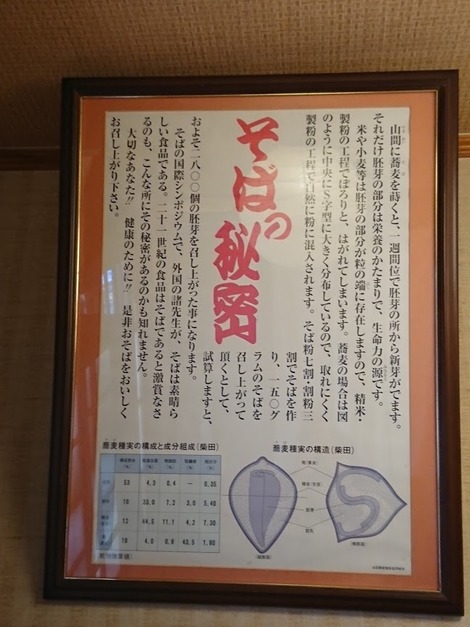 山間に蕎麦を蒔くと、一週間位で胚芽の所から新芽がでます。
それだけ胚芽の部分は栄養のかたまりで、生命力の源です。
米や小麦等は胚芽の部分が粒の端に存在しますので、精米・
製粉の工程でぽろりと、はがれてしまいます。蕎麦の場合は図
のように中央にS字型に大きく分布しているので、取れにくく
製粉の工程で自然に粉に混入されます。そば粉七割・割粉三
割でそばを作
り、一五〇グ
ラムのそばを
召し上がって
頂くとして、
試算しますと、
そばの秘密
およそ二八〇〇個の胚芽を召し上がった事になります。
そばの国際シンポジウムで、外国の諸先生が、そばは素晴ら
しい食品である。二十一世紀の食品はそばであると激賞なさ
るのも、こんな所にその秘密があるのかも知れません。
大切なあなた!! 健康のために!! 是非おそばをおいしく
お召し上がり下さい。
蕎麦種実の構成と成分組成(柴田)
53 4.0 0.4 — 0.35
蕎麦種実の構造(柴田)